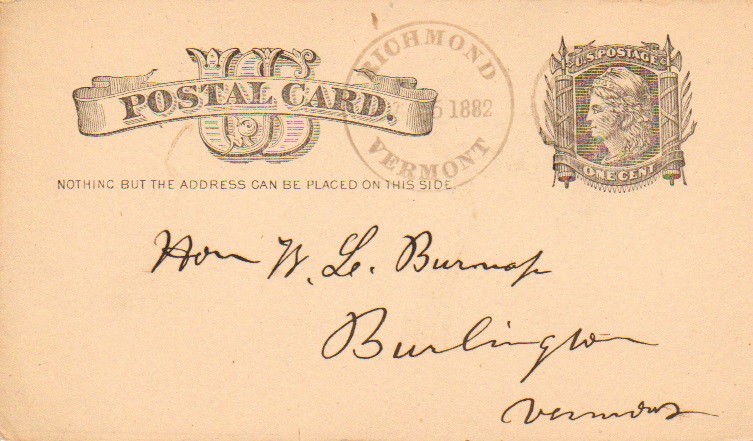 US
POSTAL CARD.
RICHMOND
5 1882
VERMONT
U.S. POSTAGE
ONE CENT
NOTHING BUT THE ADDRESS CAN BE PLACED ON THIS SIDE.
Hon W. L. Burnap
Burlington
Vermont